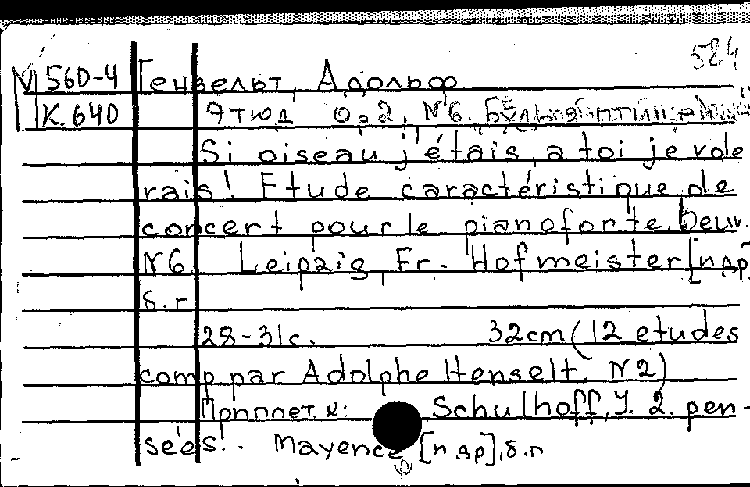 584
VI 560-4 Гензельт, Адольф
К. 640 Этюд Ор. 2, №6.
Si oiseau j'étais, a toi je vole
rais! Etude caractéristique de
concert pour le pianoforte.
N6. Leipzig, Fr. Hofmeister [н.др]
б.г.
28-31с. 32cm (12 etudes
comp par Adolphe Henselt. N2)
Приплет. к: Schulhoff, J. 2. pen-
sées. Mayence [н.др], б.г